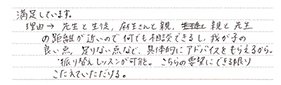 満足しています。
理由→先生と生徒、生徒さんと親、親と先生
の距離が近いので何でも相談できるし、我が子の
良い点、足りない点など、具体的にアドバイスをもらえるから。
振り替えレッスンが可能。こちらの要望にできる限り
こたえていただける。